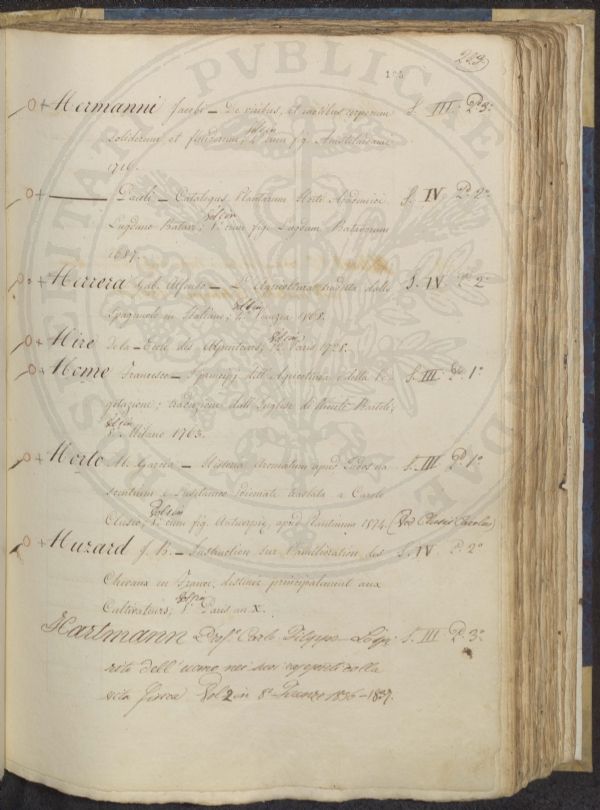 223
PVBLICAE
Hermanni Jacobi — De viribus, et motibus corporum S. III. P.° 3.°
solidorum et fluidorum; cum fig. Amstelodami
1716.
Paoli — Catalogus Plantarum Horti Academici S. IV P.° 2.°
Lugduno Batavi; Vol. 1 in 8.° cum fig. Lugduni Batavorum
1687.
Herrera Gab. Alfonso — L'Agricoltura tradotta dallo S. IV P.° 2.°
Spagnuolo in Italiano; Vol. 1 in 4.° Venezia
Hire de la — Ecole des Arpenteurs; Vol. 1 in Paris
Home Francesco — I principj dell'Agricoltura e della Ve- S. III P.° 1.°
getazione; traduzione dall'Inglese di
Vol. 1 in 8.° Milano 1763.
Horto Ab. Garcia — Historia Aromatum apud Indos na- S. III P.° 1.°
scentium; Lusitanico Idiomate tractata a Carolo
Clusio; Vol. 1 in 8.° cum fig. Antverpiae apud Plantinum 1574. (Ved. Clusio Carolus)
Huzard J. B. — Instruction sur l'amélioration des S. IV P.° 2.°
Chevaux en France, destinée principalement aux
Cultivateurs; Vol. 1 in 8.° Paris an X.
Hartmann Prof. Carlo Filippo S. III P.° 3.°
rito dell'uomo nei suoi rapporti colla
vita fisica Vol 2 in 8.° Firenze 1836-1837